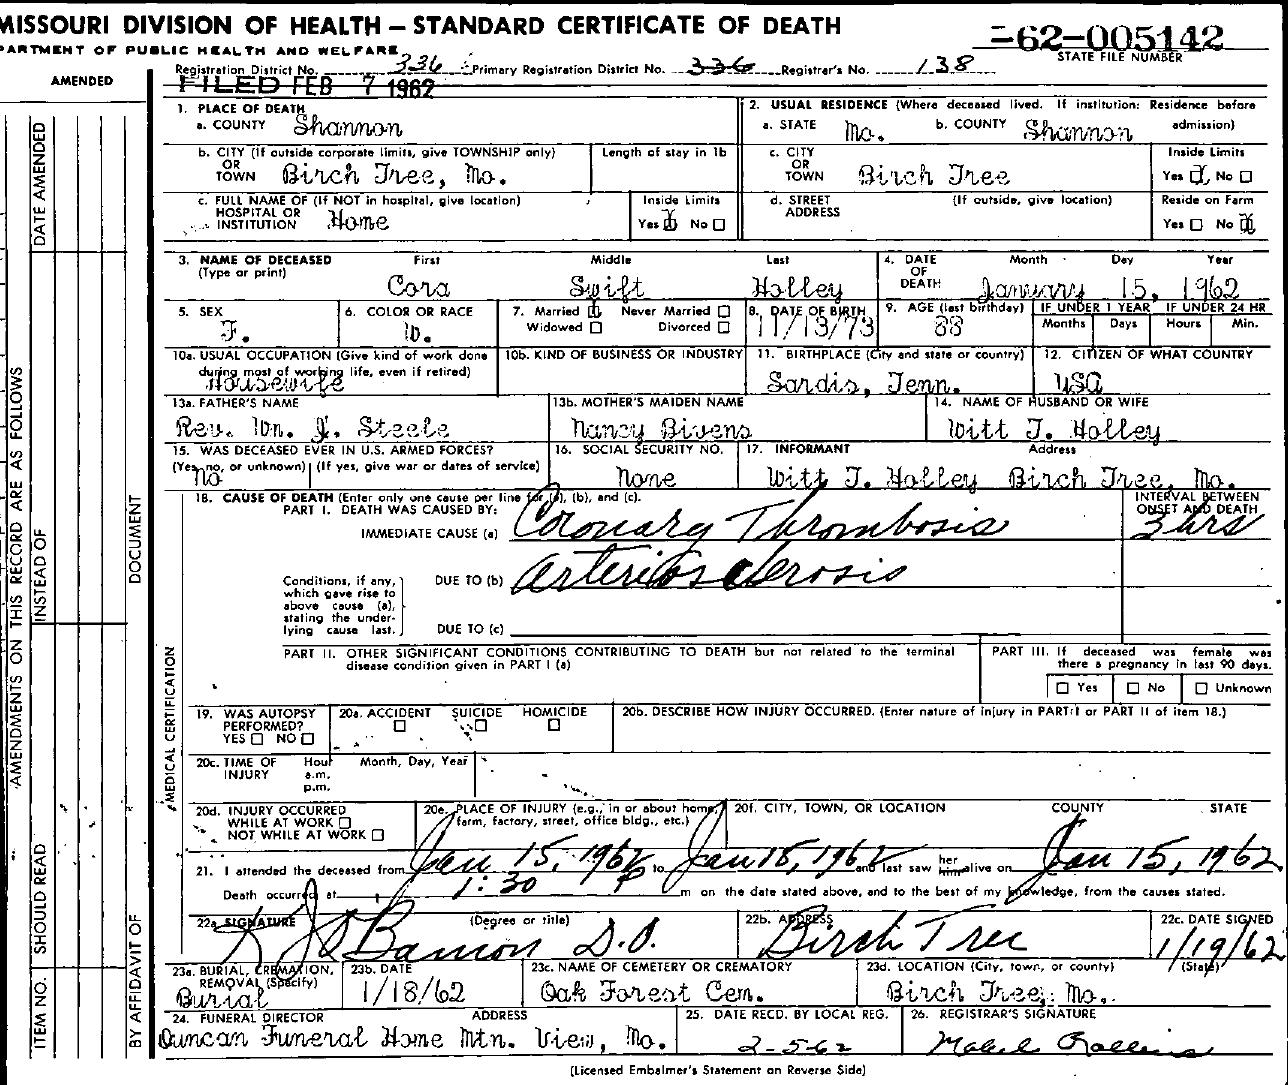 MISSOURI DIVISION OF HEALTH — STANDARD CERTIFICATE OF DEATH
PARTMENT OF PUBLIC HEALTH AND WELFARE
-62-005142
STATE FILE NUMBER
Registration District No. 336 Primary Registration District No. 336 Registrar's No. 138
FILED FEB 7 1962
AMENDED
DATE AMENDED
AMENDMENTS ON THIS RECORD ARE AS FOLLOWS
INSTEAD OF
DOCUMENT
SHOULD READ
ITEM NO.
BY AFFIDAVIT OF
MEDICAL CERTIFICATION
1. PLACE OF DEATH
a. COUNTY Shannon
2. USUAL RESIDENCE (Where deceased lived. If institution: Residence before admission)
a. STATE Mo. b. COUNTY Shannon
b. CITY (If outside corporate limits, give TOWNSHIP only) OR TOWN Birch Tree, Mo.
Length of stay in 1b
c. CITY OR TOWN Birch Tree
Inside Limits
Yes X No
c. FULL NAME OF (If NOT in hospital, give location) HOSPITAL OR INSTITUTION Home
Inside Limits
Yes X No
d. STREET ADDRESS (If outside, give location)
Reside on Farm
Yes No X
3. NAME OF DECEASED (Type or print)
First Middle Last
Cora Swift Holley
4. DATE OF DEATH Month Day Year
January 15, 1962
5. SEX
F.
6. COLOR OR RACE
W.
7. Married X Never Married
Widowed Divorced
8. DATE OF BIRTH
11/13/73
9. AGE (last birthday)
88
IF UNDER 1 YEAR IF UNDER 24 HR
Months Days Hours Min.
10a. USUAL OCCUPATION (Give kind of work done during most of working life, even if retired)
Housewife
10b. KIND OF BUSINESS OR INDUSTRY
11. BIRTHPLACE (City and state or country)
Sardis, Tenn.
12. CITIZEN OF WHAT COUNTRY
USA
13a. FATHER'S NAME
Rev. Wm. J. Steele
13b. MOTHER'S MAIDEN NAME
Nancy Bivens
14. NAME OF HUSBAND OR WIFE
Witt T. Holley
15. WAS DECEASED EVER IN U.S. ARMED FORCES?
(Yes, no, or unknown) (If yes, give war or dates of service)
no
16. SOCIAL SECURITY NO.
None
17. INFORMANT Address
Witt T. Holley Birch Tree, Mo.
18. CAUSE OF DEATH (Enter only one cause per line for (a), (b), and (c).
PART I. DEATH WAS CAUSED BY:
IMMEDIATE CAUSE (a) Coronary Thrombosis
INTERVAL BETWEEN ONSET AND DEATH
3 hrs
Conditions, if any, which gave rise to above cause (a), stating the underlying cause last.
DUE TO (b) Arteriosclerosis
DUE TO (c)
PART II. OTHER SIGNIFICANT CONDITIONS CONTRIBUTING TO DEATH but not related to the terminal disease condition given in PART I (a)
PART III. If deceased was female was there a pregnancy in last 90 days.
Yes No Unknown
19. WAS AUTOPSY PERFORMED?
YES NO
20a. ACCIDENT SUICIDE HOMICIDE
20b. DESCRIBE HOW INJURY OCCURRED. (Enter nature of injury in PART I or PART II of item 18.)
20c. TIME OF INJURY Hour a.m. p.m. Month, Day, Year
20d. INJURY OCCURRED
WHILE AT WORK
NOT WHILE AT WORK
20e. PLACE OF INJURY (e.g., in or about home, farm, factory, street, office bldg., etc.)
20f. CITY, TOWN, OR LOCATION COUNTY STATE
21. I attended the deceased from Jan 15, 1962 to Jan 15, 1962 and last saw her him alive on Jan 15, 1962
Death occurred at 1:30 P m on the date stated above, and to the best of my knowledge, from the causes stated.
22a. SIGNATURE (Degree or title)
D.O.
22b. ADDRESS
Birch Tree
22c. DATE SIGNED
1/19/62
23a. BURIAL, CREMATION, REMOVAL (Specify)
Burial
23b. DATE
1/18/62
23c. NAME OF CEMETERY OR CREMATORY
Oak Forest Cem.
23d. LOCATION (City, town, or county) (State)
Birch Tree, Mo.
24. FUNERAL DIRECTOR ADDRESS
Duncan Funeral Home Mtn. View, Mo.
25. DATE RECD. BY LOCAL REG.
2-5-62
26. REGISTRAR'S SIGNATURE
Mabel Rollins
(Licensed Embalmer's Statement on Reverse Side)